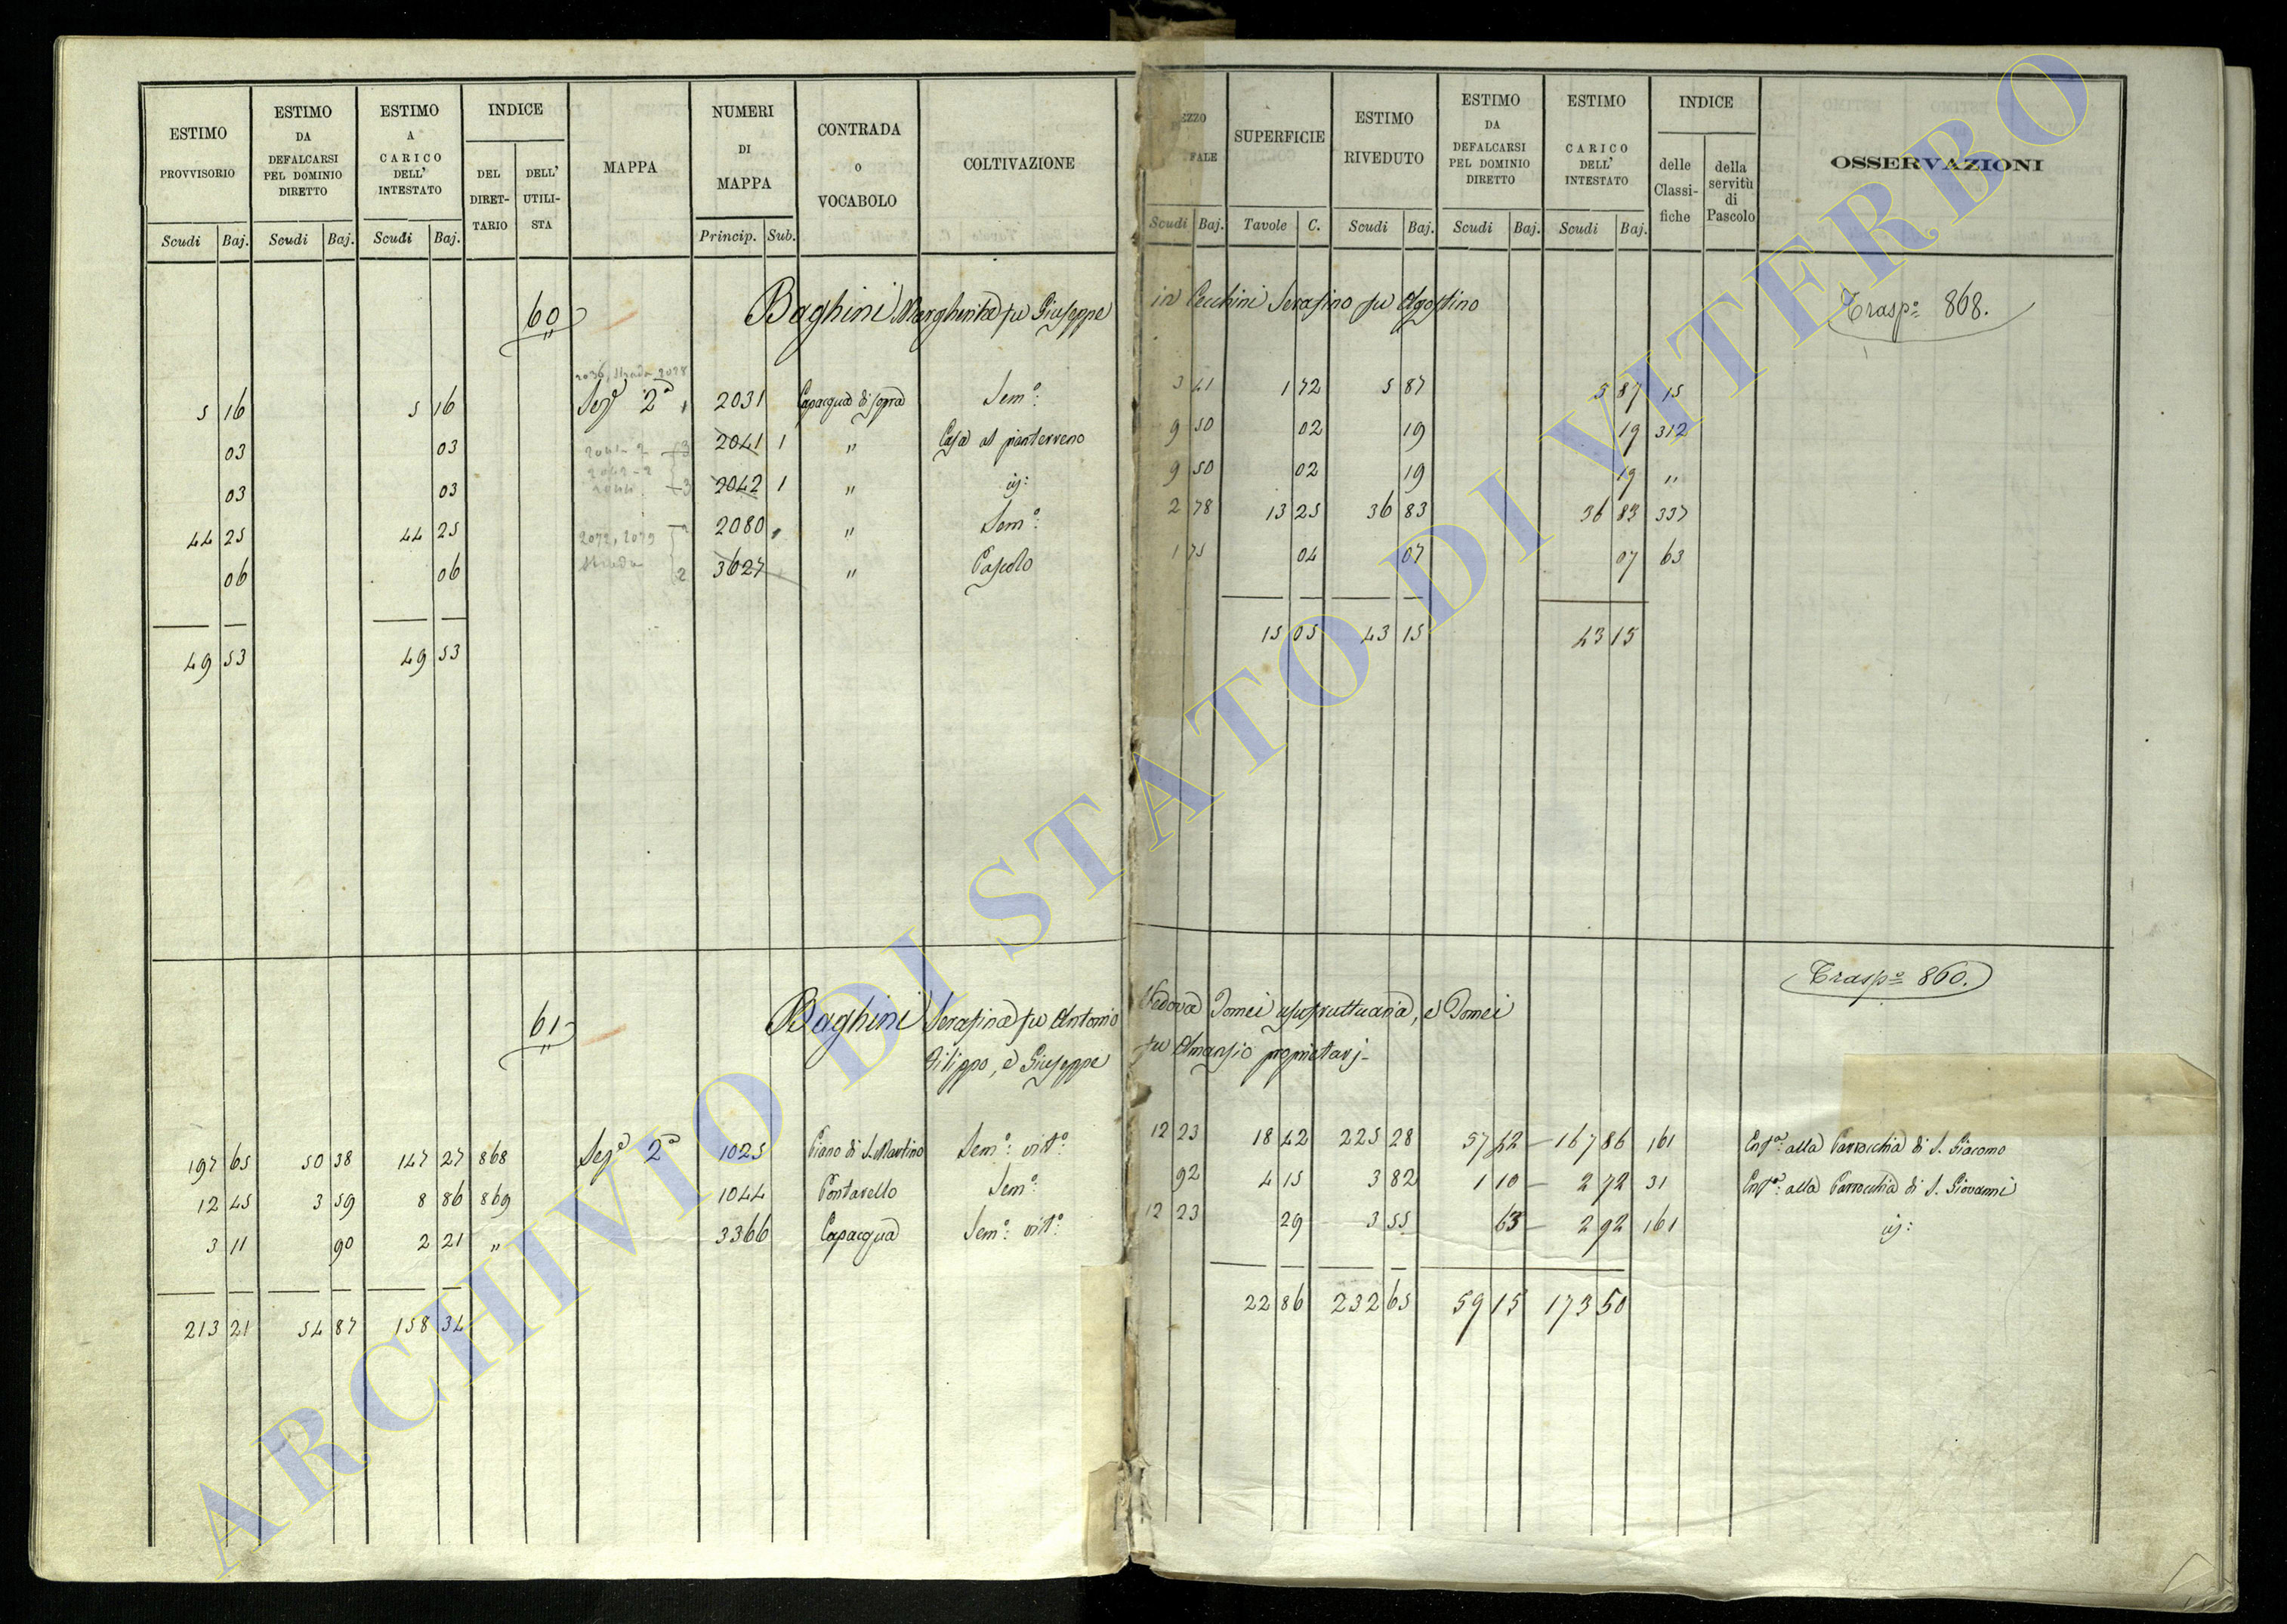 ESTIMO PROVVISORIO Scudi Baj. | ESTIMO DA DEFALCARSI PEL DOMINIO DIRETTO Scudi Baj. | ESTIMO A CARICO DELL' INTESTATO Scudi Baj. | INDICE DEL DIRET-TARIO DELL' UTILI-STA | MAPPA | NUMERI DI MAPPA Princip. Sub. | CONTRADA o VOCABOLO | COLTIVAZIONE | FALE Scudi Baj. | SUPERFICIE Tavole C. | ESTIMO RIVEDUTO Scudi Baj. | ESTIMO DA DEFALCARSI PEL DOMINIO DIRETTO Scudi Baj. | ESTIMO A CARICO DELL' INTESTATO Scudi Baj. | INDICE delle Classi-fiche della servitù di Pascolo | OSSERVAZIONI
60 Baghini Margherita fu Giuseppe in Cecchini Serafino fu Agostino Trasp.o 868.
2036, strada 2028
5 16 5 16 Sez.e 2.a 2031 Capacqua di sopra Sem.o: 3 41 1 72 5 87 5 87 15
03 03 2041 1 " Casa al pianterreno 9 50 02 19 19 312
03 03 2042 1 " id: 9 50 02 19 19 "
44 25 44 25 2080 " Sem.o: 2 78 13 25 36 83 36 83 337
06 06 2072, 2079 strada 2 3627 " Pascolo 1 75 04 07 07 63
49 53 49 53 15 05 43 15 43 15
Trasp.o 860.
61 Baghini Serafina fu Antonio Vedova Tomei usufruttuaria, e Tomei
Filippo, e Giuseppe fu Amanzio proprietarj
197 65 50 38 147 27 868 Sez.e 2.a 1025 Piano di S. Martino Sem.o: vit.o: 12 23 18 42 225 28 57 42 167 86 161 Enf.a: alla Parrocchia di S. Giacomo
12 45 3 59 8 86 869 1044 Pontarello Sem.o: 92 4 15 3 82 1 10 2 72 31 Enf.a: alla Parrocchia di S. Giovanni
3 11 90 2 21 " 3366 Capacqua Sem.o: vit.o: 12 23 29 3 55 63 2 92 161 id:
213 21 54 87 158 34 22 86 232 65 59 15 173 50
ARCHIVIO DI STATO DI VITERBO